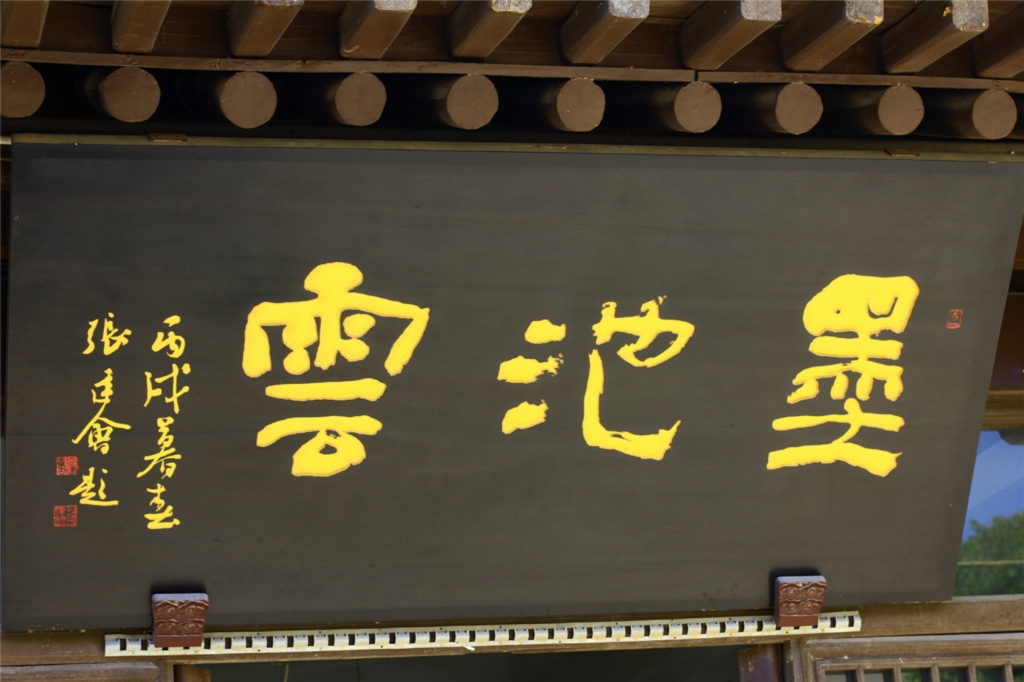 墨池雲
丙戌暮春
張廷會題